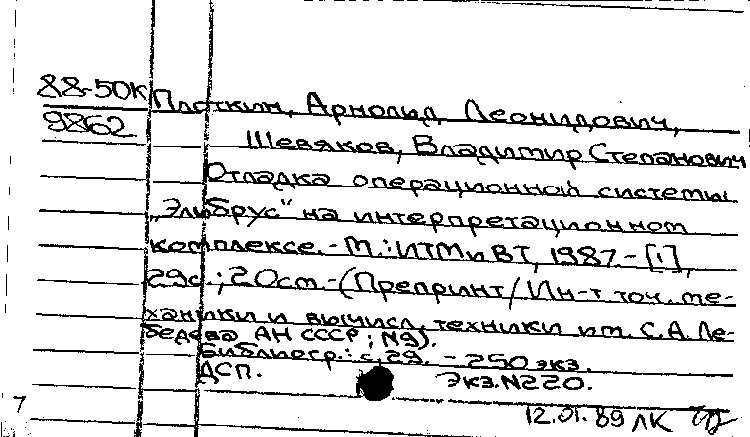 88-50К Плоткин, Арнольд Леонидович,
9862 Шевяков, Владимир Степанович
Отладка операционной системы
„Эльбрус“ на интерпретационном
комплексе.- М.: ИТМ и ВТ, 1987.- [1],
29с.; 20см.-(Препринт/Ин-т точ. ме-
ханики и вычисл. техники им. С.А. Ле-
бедева АН СССР; N9).
Библиогр.: с.29. - 250 экз.
ДСП. Экз.N220.
12.01.89 ЛК
7